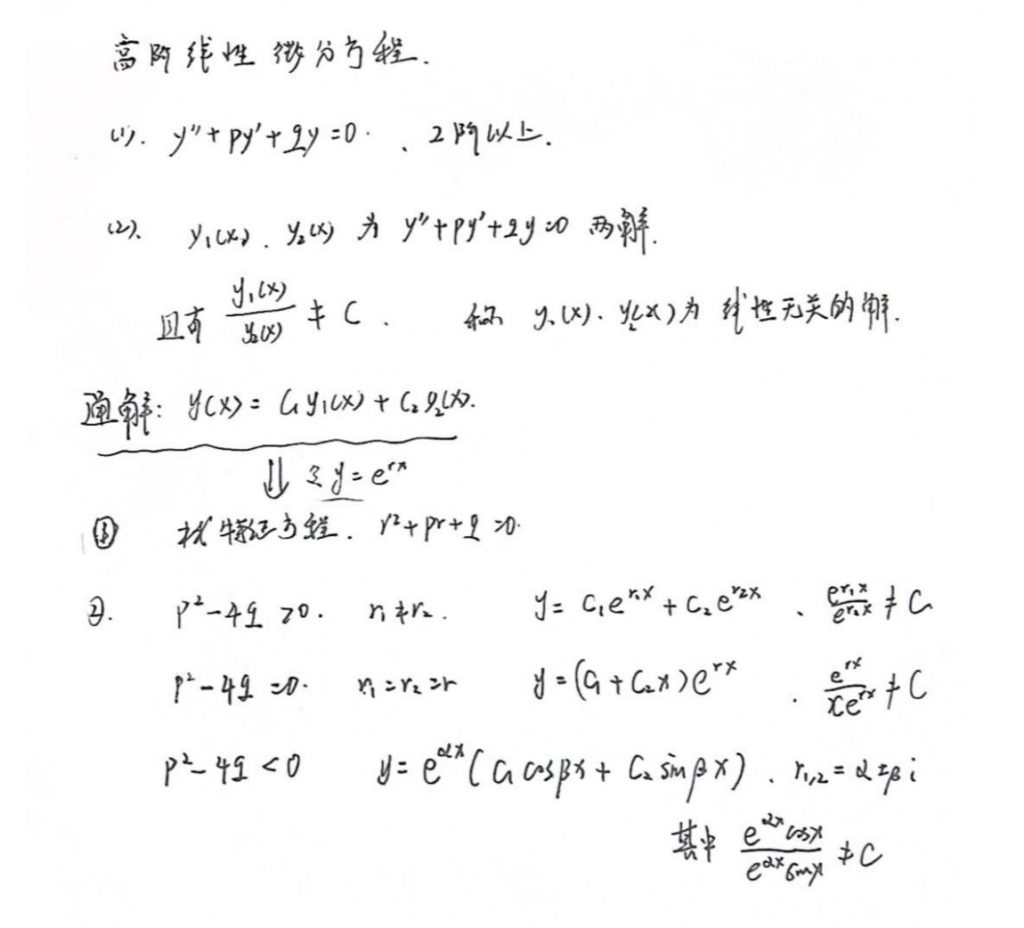 高阶线性微分方程.
(1). y''+py'+qy=0. 、2阶以上.
(2). y₁(x)、y₂(x) 为 y''+py'+qy=0 两解.
且有 y₁(x)/y₂(x) ≠ C. 称 y₁(x)、y₂(x)为线性无关的解.
通解: y(x)= C₁y₁(x)+C₂y₂(x).
⇓ 令 y=e^{rx}
① 求特征方程. r²+pr+q=0.
②. p²-4q>0. r₁≠r₂. y=C₁e^{r₁x}+C₂e^{r₂x} 、 e^{r₁x}/e^{r₂x} ≠ C
p²-4q=0. r₁=r₂=r y=(C₁+C₂x)e^{rx} 、 e^{rx}/xe^{rx} ≠ C
p²-4q<0 y=e^{αx}(C₁cosβx+C₂sinβx)、r₁,₂=α±βi
其中 e^{αx}cosx/e^{αx}sinx ≠ C